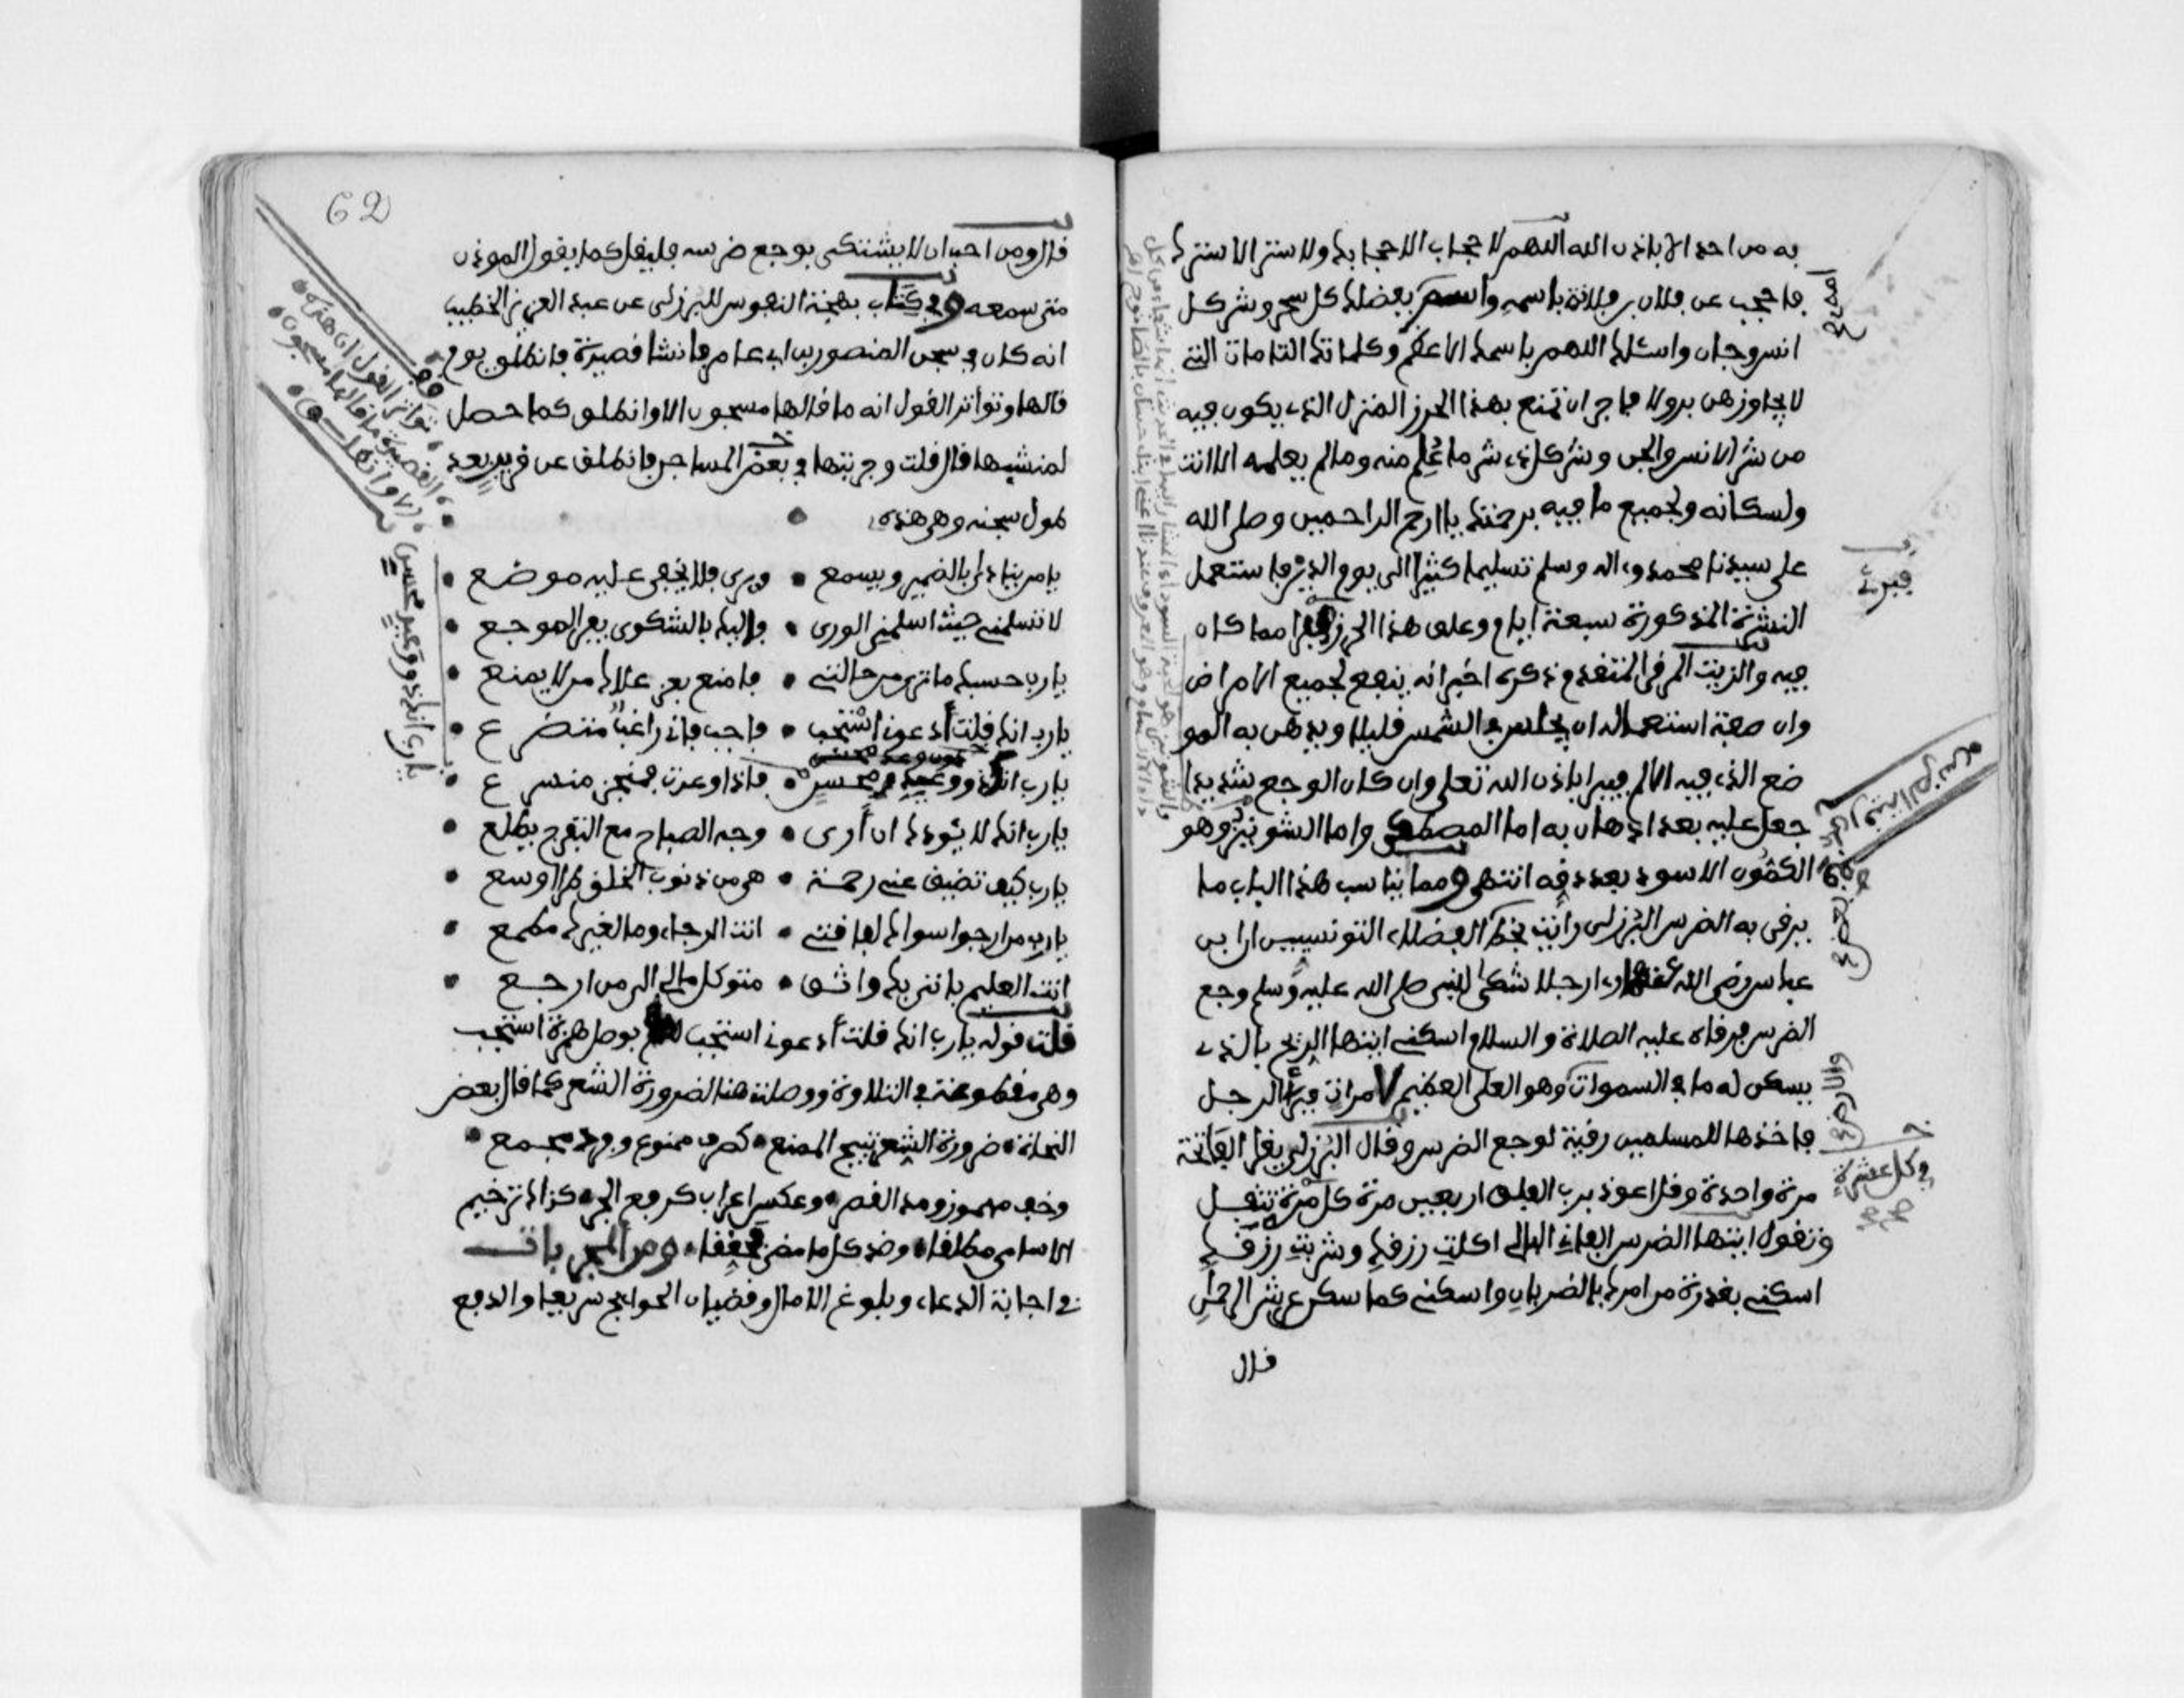 به من احد الا باذن الله اللهم لا حجاب الا حجابك ولا ستر الا سترك
فاحجب عن فلان بن فلانة باسمه واستر بفضلك كل سحر وشر كل
انس وجان واسئلك اللهم باسمك الاعظم وكلماتك التامات التي
لا يجاوزهن بر ولا فاجر ان تمنع بهذا الحرز المنزل الذي يكون فيه
من شر الانس والجن وشر كل ذي شر ما علم منه وما لم يعلمه الا انت
ولسكانه ولجميع ما فيه برحمتك يا ارحم الراحمين وصلى الله
على سيدنا محمد وءاله وسلم تسليما كثيرا الى يوم الدين فاستعمل
النشرة المذكورة سبعة ايام وعلق هذا الحرز فبرا مما كان
فيه والزيت المرقي المتقدم ذكره اخبر انه ينفع لجميع الامراض
وان صفة استعماله ان يجلس في الشمس قليلا ويدهن به المو
ضع الذي فيه الالم فيبرا باذن الله تعلى وان كان الوجع شديدا
جعل عليه بعد الادهان به اما المصطكى واما الشونيز وهو
الكمون الاسود بعد دقه انتهى ومما يناسب هذا الباب ما
يرقى به الضرس البرزلي رايت بخط الفضلاء التونسيين ان ابن
عباس رضي الله عنهما رءا رجلا شكى للنبي صلى الله عليه وسلم وجع
الضرس فرقاه عليه الصلاة والسلام اسكني ايتها الريح بالذي
يسكن له ما في السموات وهو العلي العظيم 7 مرات فبرأ الرجل
فاخذها للمسلمين رقية لوجع الضرس وقال البرزلي يقرا الفاتحة
مرة واحدة وقل اعوذ برب الفلق اربعين مرة كل مرة تتفل
وتقول ايتها الضرس الفاني البالي اكلت رزقك وشربت رزقك
اسكني بقدرة من امرك بالضربان واسكني كما سكن عرش الرحمان
قال
في كل عشرة
رقية الضرس
قال ومن احب ان لا يشتكي بوجع ضرسه فليقل كما يقول الموذن
متى سمعه وفي كتاب بهجة النفوس للبرزلي عن عبد العزيز الخطيب
انه كان في سجن المنصور بن ابي عامر فانشا قصيدة فانطلق يوم
قالها وتواتر القول انه ما قالها مسجون الا وانطلق كما حصل
لمنشيها قال قلت وجربتها في بعض المساجن فانطلق عن قريب بعد
طول سجنه وهي هذه
يا من يناديٰ بالضمير ويسمع • ويرى فلا يخفى عليه موضع •
لا تسلمني حيث اسلمني الورى • فاليك بالشكوى يفر الموجع •
يا رب حسبك ما ترى من حالتي • فامنع بعز علاك من لا يمنع •
يا رب انك قلت أدعوني استجب • فاجب فاني راغب متضرع •
يا رب انك ذو وعيد محسن • فاذا وعدت فمنجز متسرع •
يا رب انك لا يئودك ان أرى • وجه الصباح مع التفرج يطلع •
يا رب كيف تضيق عني رحمة • هي من ذنوب الخلق طرا اوسع •
يا رب من ارجوا سواك لفاقتي • انت الرجاء وما لغيرك مطمع •
انت العليم بانني بك واثق • متوكل مالي الى من ارجع •
قلت قوله يا رب انك قلت أدعوني استجب بوصل همزة استجب
وهي مقطوعة في التلاوة ووصلت هنا لضرورة الشعر كما قال بعض
النحاة • ضرورة الشعر تبيح الممنع • كصرف ممنوع وفرد مجمع •
وخف مهموز ومد القصر • وعكس اعراب كرفع الجر • كذاك ترخيم
الاسامي مطلقا • وضد كل ما مضى محققا • ومن المجربات
في اجابة الدعاء وبلوغ الامال وقضيان الحوايج سريعا والدفع
62
قف
تواتر القول ان هذه
القصيدة ما قالها مسجون
الا وانطلق
يا رب انك ذو وعيد محسن